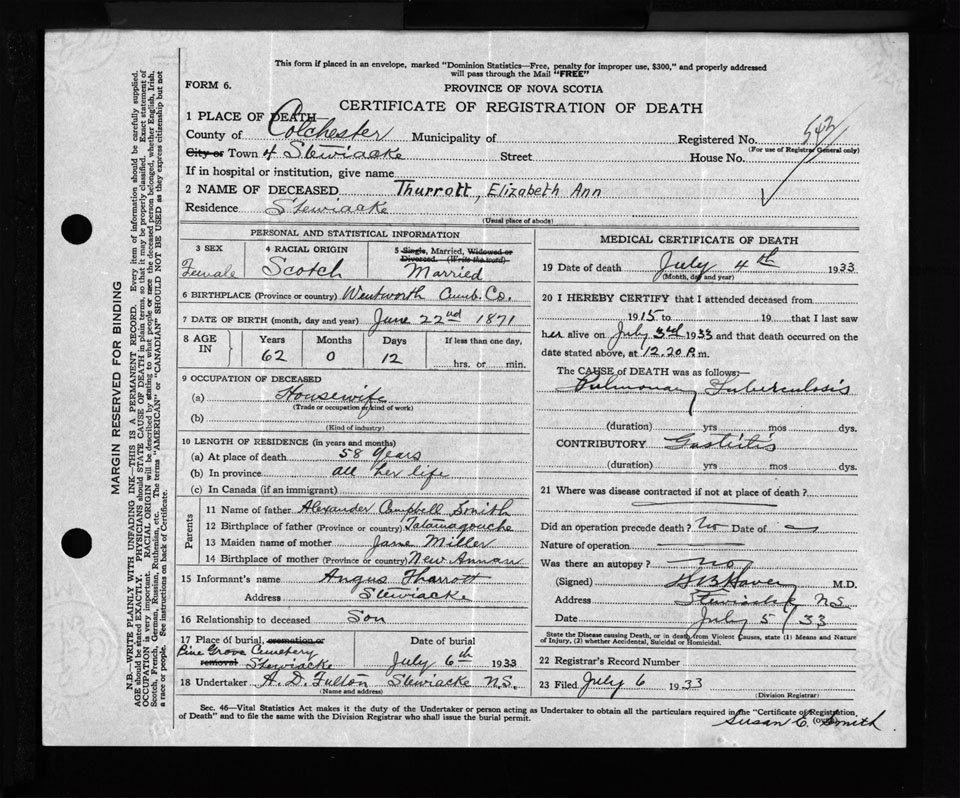 This form if placed in an envelope, marked "Dominion Statistics—Free, penalty for improper use, $300," and properly addressed
will pass through the Mail "FREE"
FORM 6.
PROVINCE OF NOVA SCOTIA
CERTIFICATE OF REGISTRATION OF DEATH
1 PLACE OF DEATH—
County of Colchester Municipality of Registered No. 542
(For use of Registrar General only)
City or Town of Stewiacke Street House No.
If in hospital or institution, give name
2 NAME OF DECEASED Thurrott, Elizabeth Ann
Residence Stewiacke
(Usual place of abode)
PERSONAL AND STATISTICAL INFORMATION
3 SEX 4 RACIAL ORIGIN 5 Single, Married, Widowed or
Divorced. (Write the word)
Female Scotch Married
6 BIRTHPLACE (Province or country) Wentworth Cumb. Co.
7 DATE OF BIRTH (month, day and year) June 22nd 1871
8 AGE IN Years Months Days If less than one day,
62 0 12 hrs. or min.
9 OCCUPATION OF DECEASED
(a) Housewife
(Trade or occupation or kind of work)
(b)
(Kind of industry)
10 LENGTH OF RESIDENCE (in years and months)
(a) At place of death 58 Years
(b) In province all her life
(c) In Canada (if an immigrant)
Parents
11 Name of father Alexander Campbell Smith
12 Birthplace of father (Province or country) Tatamagouche
13 Maiden name of mother Jane Miller
14 Birthplace of mother (Province or country) New Annan
15 Informant's name Angus Tharrott
Address Stewiacke
16 Relationship to deceased Son
17 Place of burial, cremation or Date of burial
Pine Grove Cemetery
removal Stewiacke July 6th 1933
18 Undertaker A. D. Fulton Stewiacke N.S.
(Name and address)
MEDICAL CERTIFICATE OF DEATH
19 Date of death July 4th 1933
(Month, day and year)
20 I HEREBY CERTIFY that I attended deceased from
1915 to 19 that I last saw
her alive on July 3rd 1933 and that death occurred on the
date stated above, at 12.20 P.m.
The CAUSE of DEATH was as follows:—
Pulmonary Tuberculosis
(duration) yrs mos dys.
CONTRIBUTORY Gastritis
(duration) yrs mos dys.
21 Where was disease contracted if not at place of death?
Did an operation precede death? No Date of
Nature of operation
Was there an autopsy? no
(Signed) M.D.
Address N.S.
Date July 5/33
State the Disease causing Death, or in death from Violent Causes, state (1) Means and Nature
of Injury, (2) whether Accidental, Suicidal or Homicidal.
22 Registrar's Record Number
23 Filed July 6 1933
(Division Registrar)
Sec. 46—Vital Statistics Act makes it the duty of the Undertaker or person acting as Undertaker to obtain all the particulars required in the "Certificate of Registration
of Death" and to file the same with the Division Registrar who shall issue the burial permit. (over)
Susan E. Smith
MARGIN RESERVED FOR BINDING
N.B.—WRITE PLAINLY WITH UNFADING INK.—THIS IS A PERMANENT RECORD. Every item of information should be carefully supplied.
AGE should be stated EXACTLY. PHYSICIANS should STATE CAUSE OF DEATH in plain terms, so that it may be properly classified. Exact statement of
OCCUPATION is very important. RACIAL ORIGIN will be described by stating to what people or race the deceased person belonged, whether English, Irish,
Scotch, French, German, Russian, Ruthenian, etc. The terms "AMERICAN" or "CANADIAN" SHOULD NOT BE USED as they express citizenship but not
a race or people. See instructions on back of Certificate.